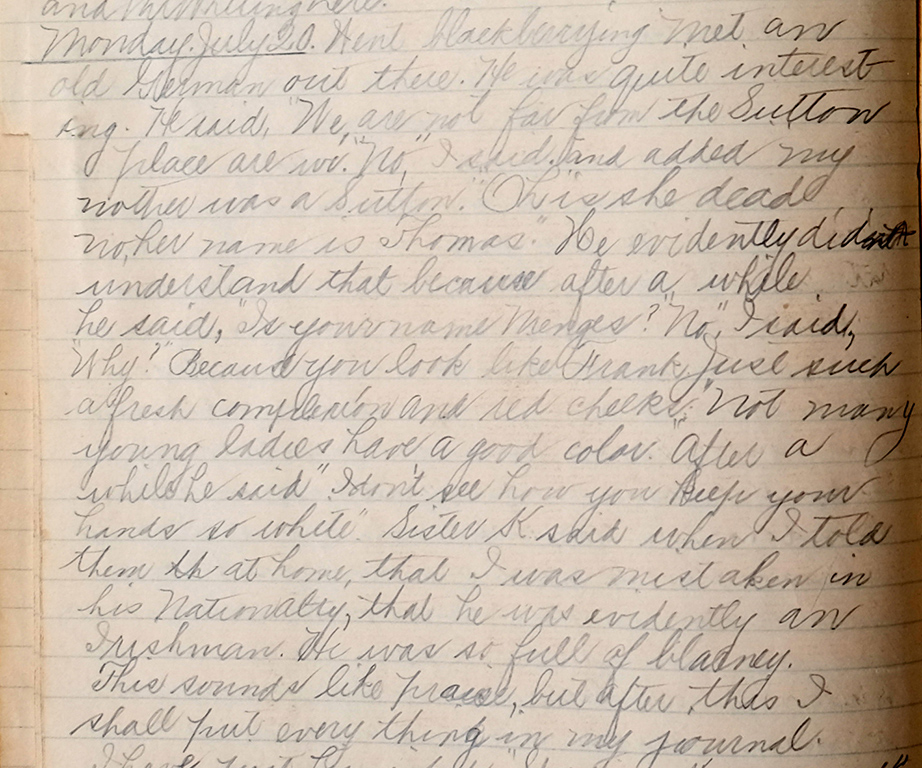 and
Monday. July 20. Went blackberrying met an
old German out there. He was quite interest-
ing. He said, "We are not far from the Sutton
place are we". "No," I said. and added my
mother was a Sutton." "Oh is she dead
no, her name is Thomas." He evidently didn't
understand that because after a while
he said, "Is your name Menges?" "No", I said,
"Why?" Because you look like Frank, Just such
a fresh complexion and red cheeks. "Not many
young ladies have a good color." After a
while he said "I don't see how you keep your
hands so white". Sister K said when I told
them th at home, that I was mistaken in
his Nationalty, that he was evidently an
Irishman. He was so full of blarney.
This sounds like praise, but after this I
shall put every thing in my journal.
I have just